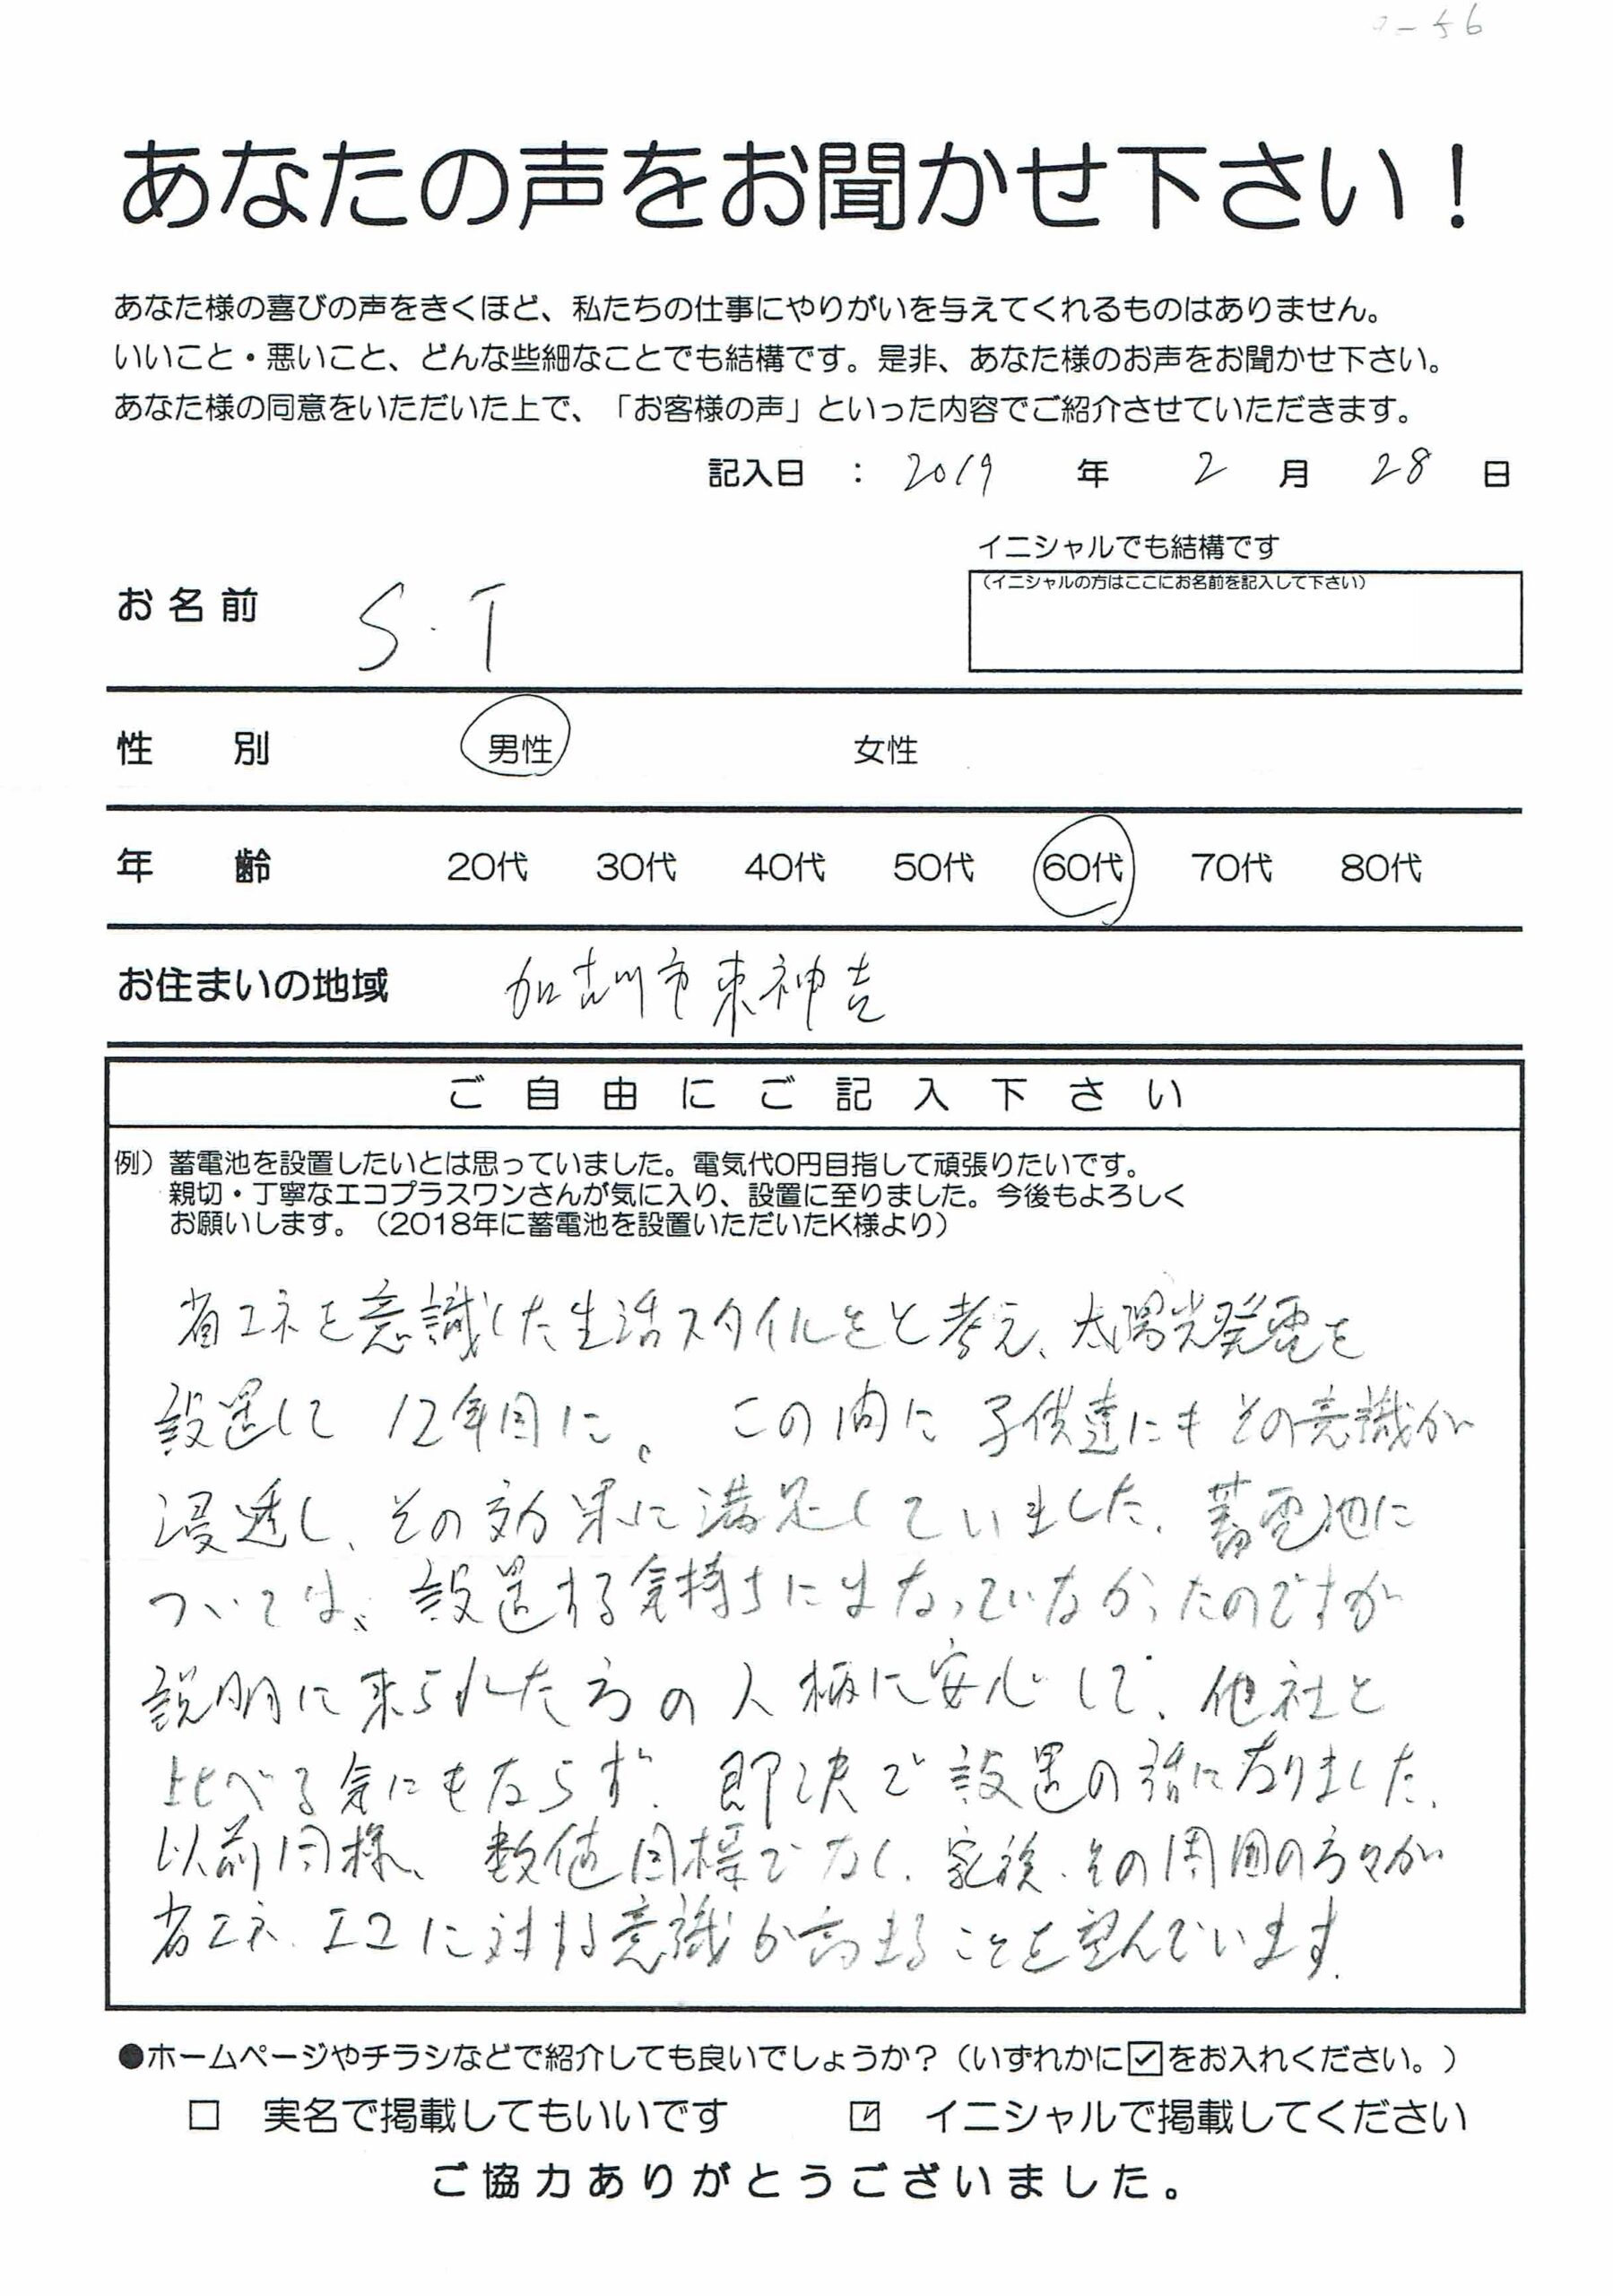 -56
あなたの声をお聞かせ下さい！
あなた様の喜びの声をきくほど、私たちの仕事にやりがいを与えてくれるものはありません。
いいこと・悪いこと、どんな些細なことでも結構です。是非、あなた様のお声をお聞かせ下さい。
あなた様の同意をいただいた上で、「お客様の声」といった内容でご紹介させていただきます。
記入日 ： 2019 年 2 月 28 日
イニシャルでも結構です
（イニシャルの方はここにお名前を記入して下さい）
お名前 S・T
性別 男性 女性
年齢 20代 30代 40代 50代 60代 70代 80代
お住まいの地域 加古川市東神吉
ご自由にご記入下さい
例）蓄電池を設置したいとは思っていました。電気代0円目指して頑張りたいです。
親切・丁寧なエコプラスワンさんが気に入り、設置に至りました。今後もよろしく
お願いします。（2018年に蓄電池を設置いただいたK様より）
省エネを意識した生活スタイルをと考え、太陽光発電を
設置して 12年目に。この間に子供達にもその意識が
浸透し、その効果に満足していました。蓄電池に
ついては、設置する気持ちにはなっていなかったのですが
説明に来られた方の人柄に安心して、他社と
比べる気にもならず、即決で設置の話になりました。
以前同様、数値目標でなく、家族、その周囲の方々が
省エネ、エコに対する意識が高まることを望んでいます。
●ホームページやチラシなどで紹介しても良いでしょうか？（いずれかに☑をお入れください。）
□ 実名で掲載してもいいです ☑ イニシャルで掲載してください
ご協力ありがとうございました。